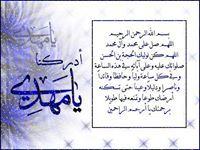 يا مهدي
أدركنا
يا مهدي
بسم الله الرحمن الرحيم
اللهم صل على محمد وآل محمد
اللهم كن لوليك الحجة بن الحسن
صلواتك عليه وعلى آبائه في هذه الساعة
وفي كل ساعة وليا وحافظا وقائدا
وناصرا ودليلا وعينا حتى تسكنه
أرضك طوعا وتمتعه فيها طويلا
برحمتك يا أرحم الراحمين